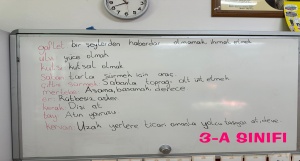 gaflet bir şeylerden haberdar olmamak, ihmal etmek
ulvi yüce olmak
kutsi kutsal olmak
saban tarla sürmek için araç
çifte sürmek Sabanla toprağı alt üst etmek
mertebe Aşama, basamak, derece
er Rütbesiz asker
Dizi at
tay Atın yavrusu
kervan Uzak yerlere ticari amaçla yolcu taşıyan
3-A SINIFI